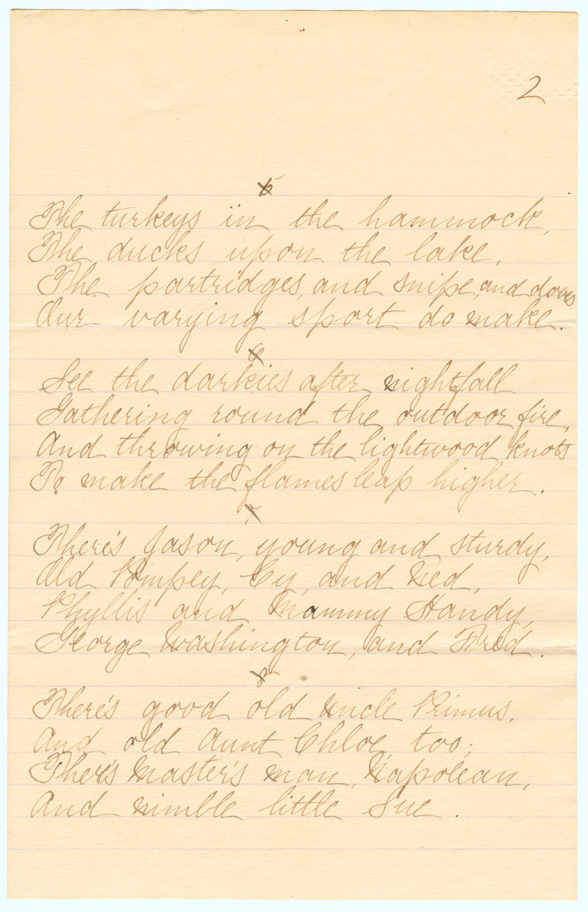 2
x
The turkeys in the hammock,
The ducks upon the lake,
The partridges, and snipe, and doves
Our varying sport do make.
x
See the darkies after nightfall
Gathering round the outdoor fire,
And throwing on the lightwood knots
To make the flames leap higher.
x
There's Jason, young and sturdy,
Old Pompey, Cy, and Ned,
Phyllis and Mammy Handy,
George Washington, and Fred.
x
There's good old Uncle Primus,
And old Aunt Chloe too;
There's Master's man, Napolean,
And nimble little Sue.